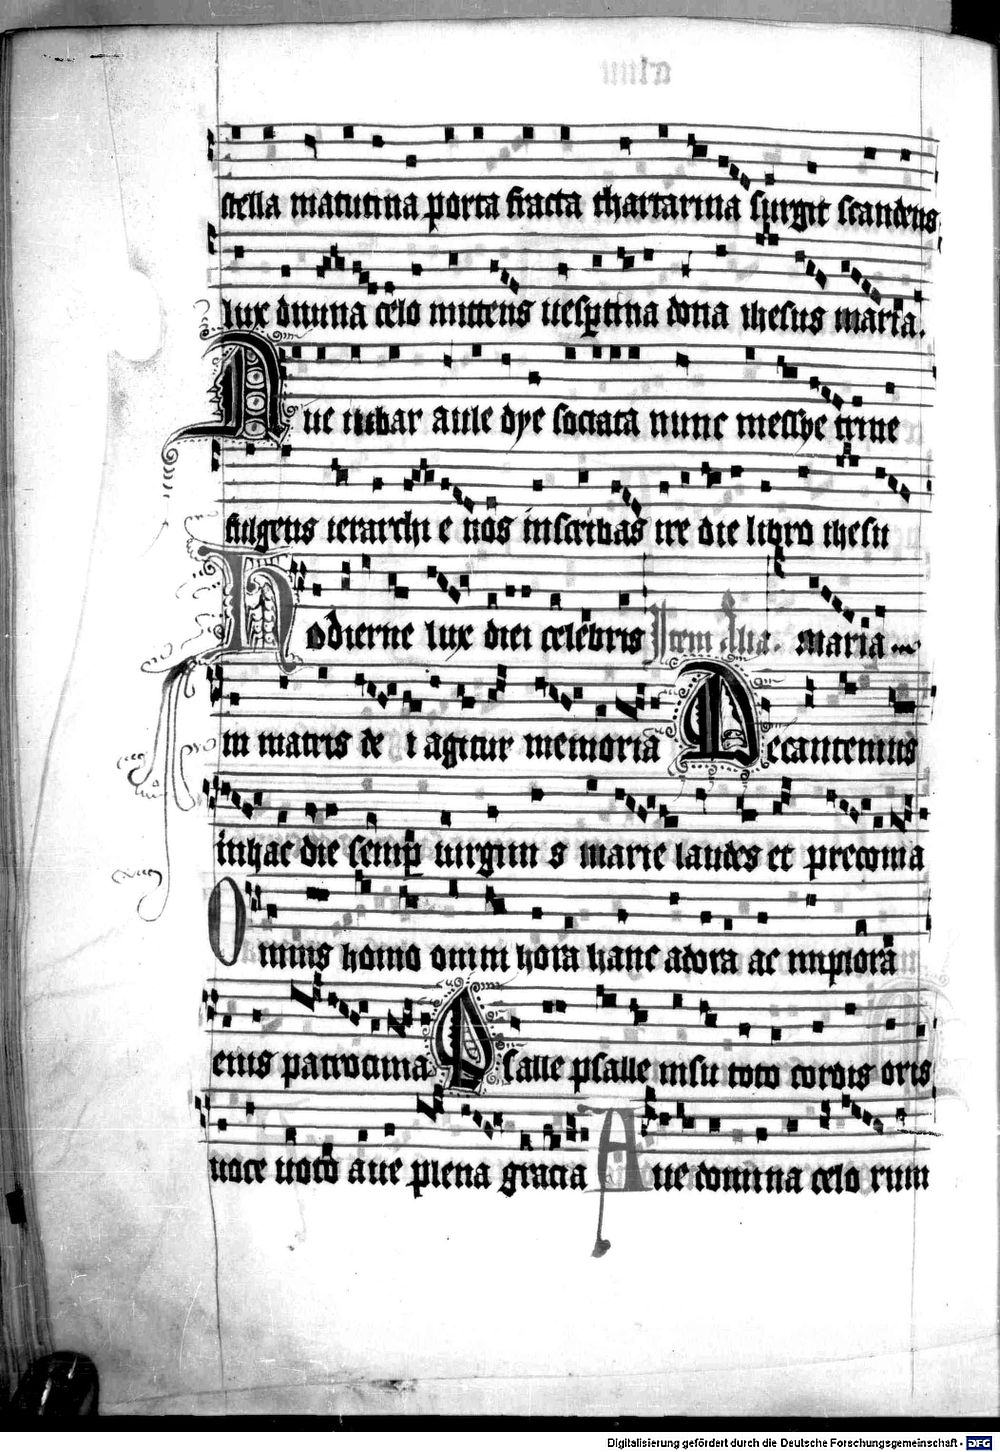 stella matutina porta fracta thartarina surgit scandens
lux diuina celo mittens uesꝑtina dona ihesus maria.
Aue iubar aule dye sociata nunc messye trine
fulgens ierarchi e nos inscribas ire die libro ihesu
Hodierne lux diei celebris Item Alia. maria
in matris de i agitur memoria Decantemus
inhac die semꝑ uirgini s marie laudes et preconia
Omnis homo omni hora hanc adora ac implora
eius patrocinia Psalle psalle nisu toto cordis oris
uoce uoto aue plena gracia Aue domina celo rum
Digitalisierung gefördert durch die Deutsche Forschungsgemeinschaft - DFG